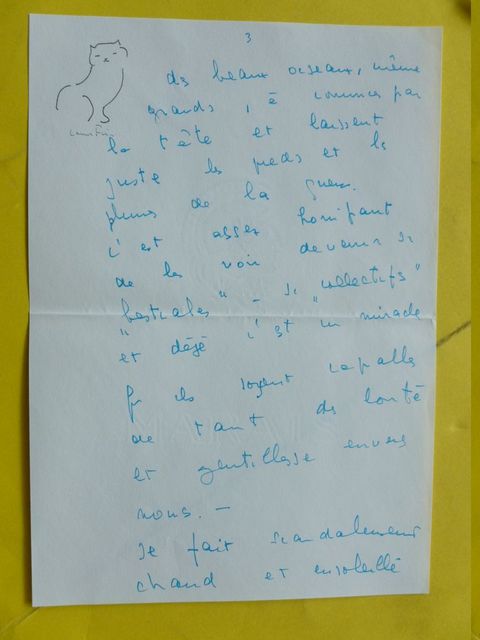 3
des beaux oiseaux, même
grands, à commencer par
la tête et laissent
juste les pieds et les
plumes de la queue.
c'est assez horrifiant
de les voir devenir si
"bestiales" – si "collectifs"
et déjà c'est un miracle
qu'ils soyent capables
de tant de bonté
et gentillesse envers
nous. –
Il fait scandaleusement
chaud et ensoleillé